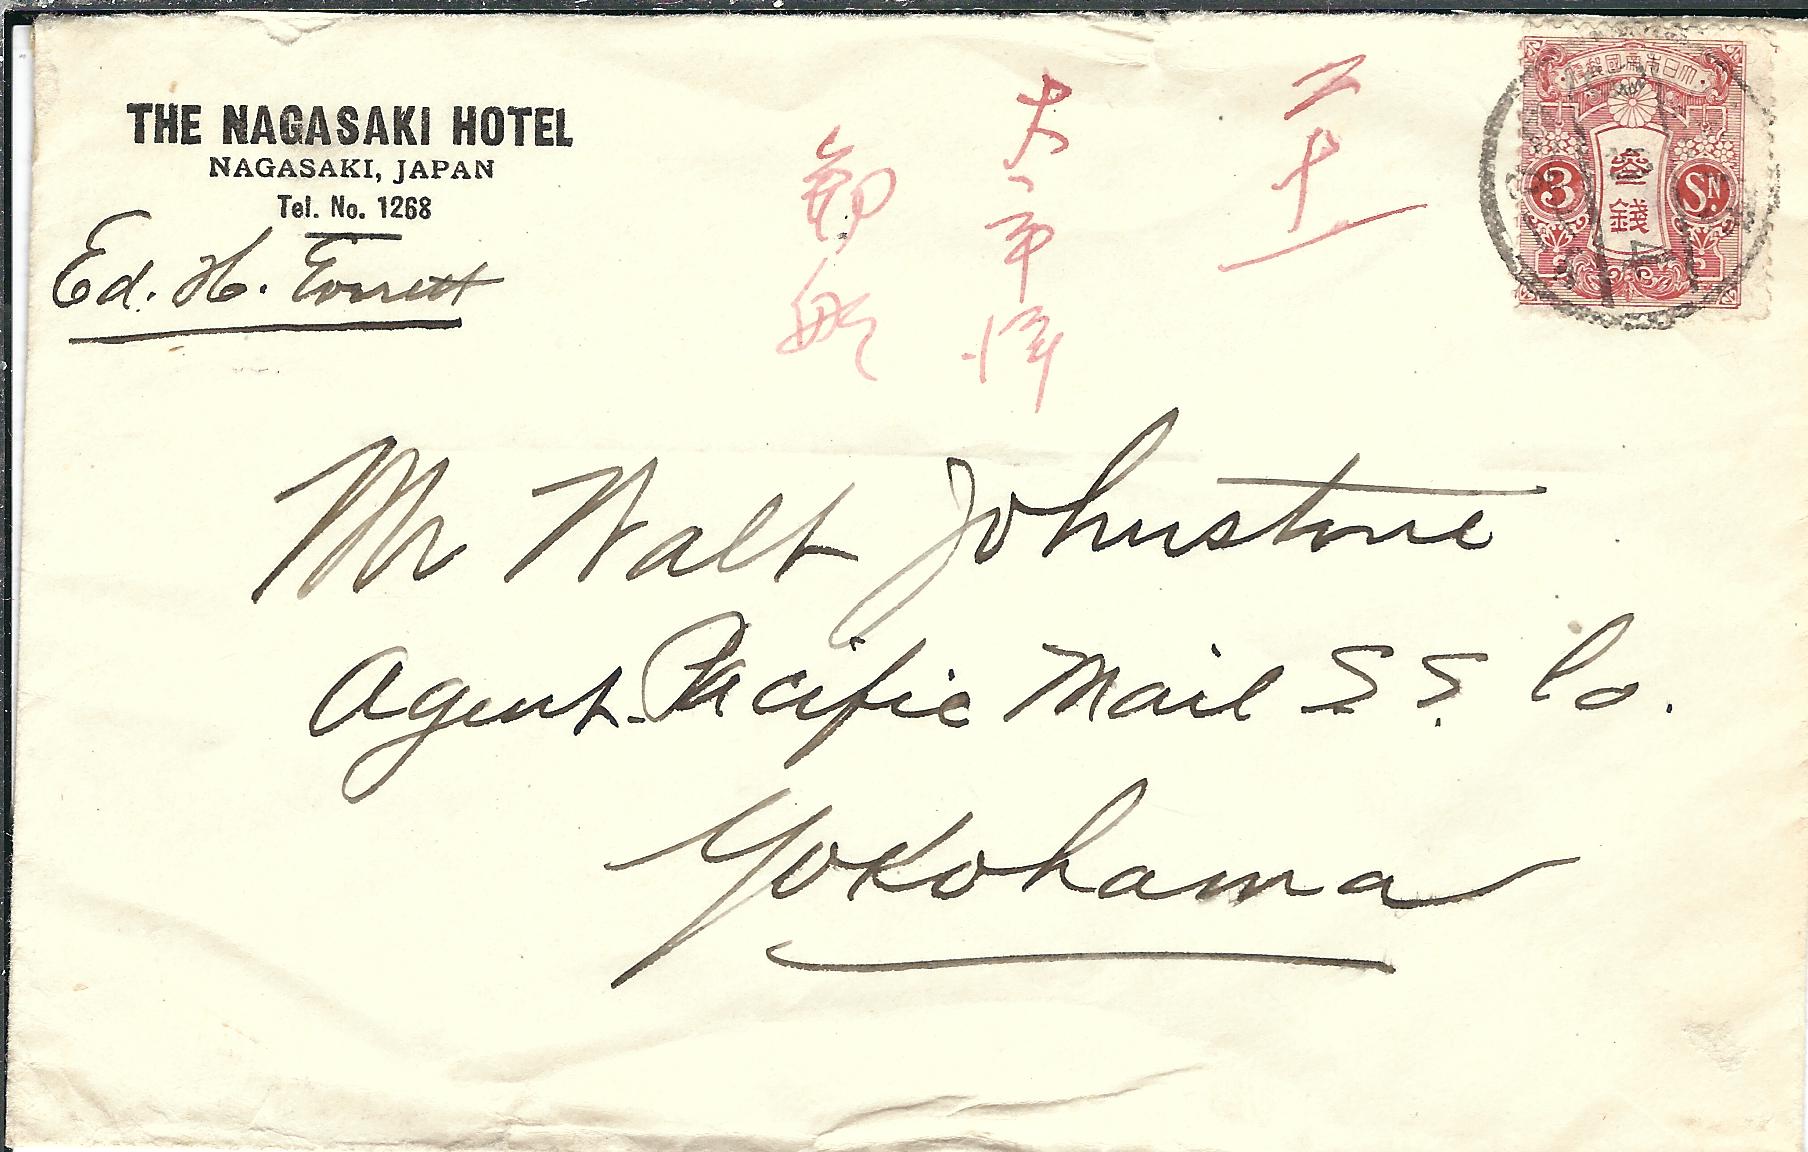 THE NAGASAKI HOTEL
NAGASAKI, JAPAN
Tel. No. 1268
Ed. H. Everett
大日本帝國郵便
參錢
3
SN.
4
Mr Walt Johnstone
Agent Pacific Mail S.S. Co.
Yokohama